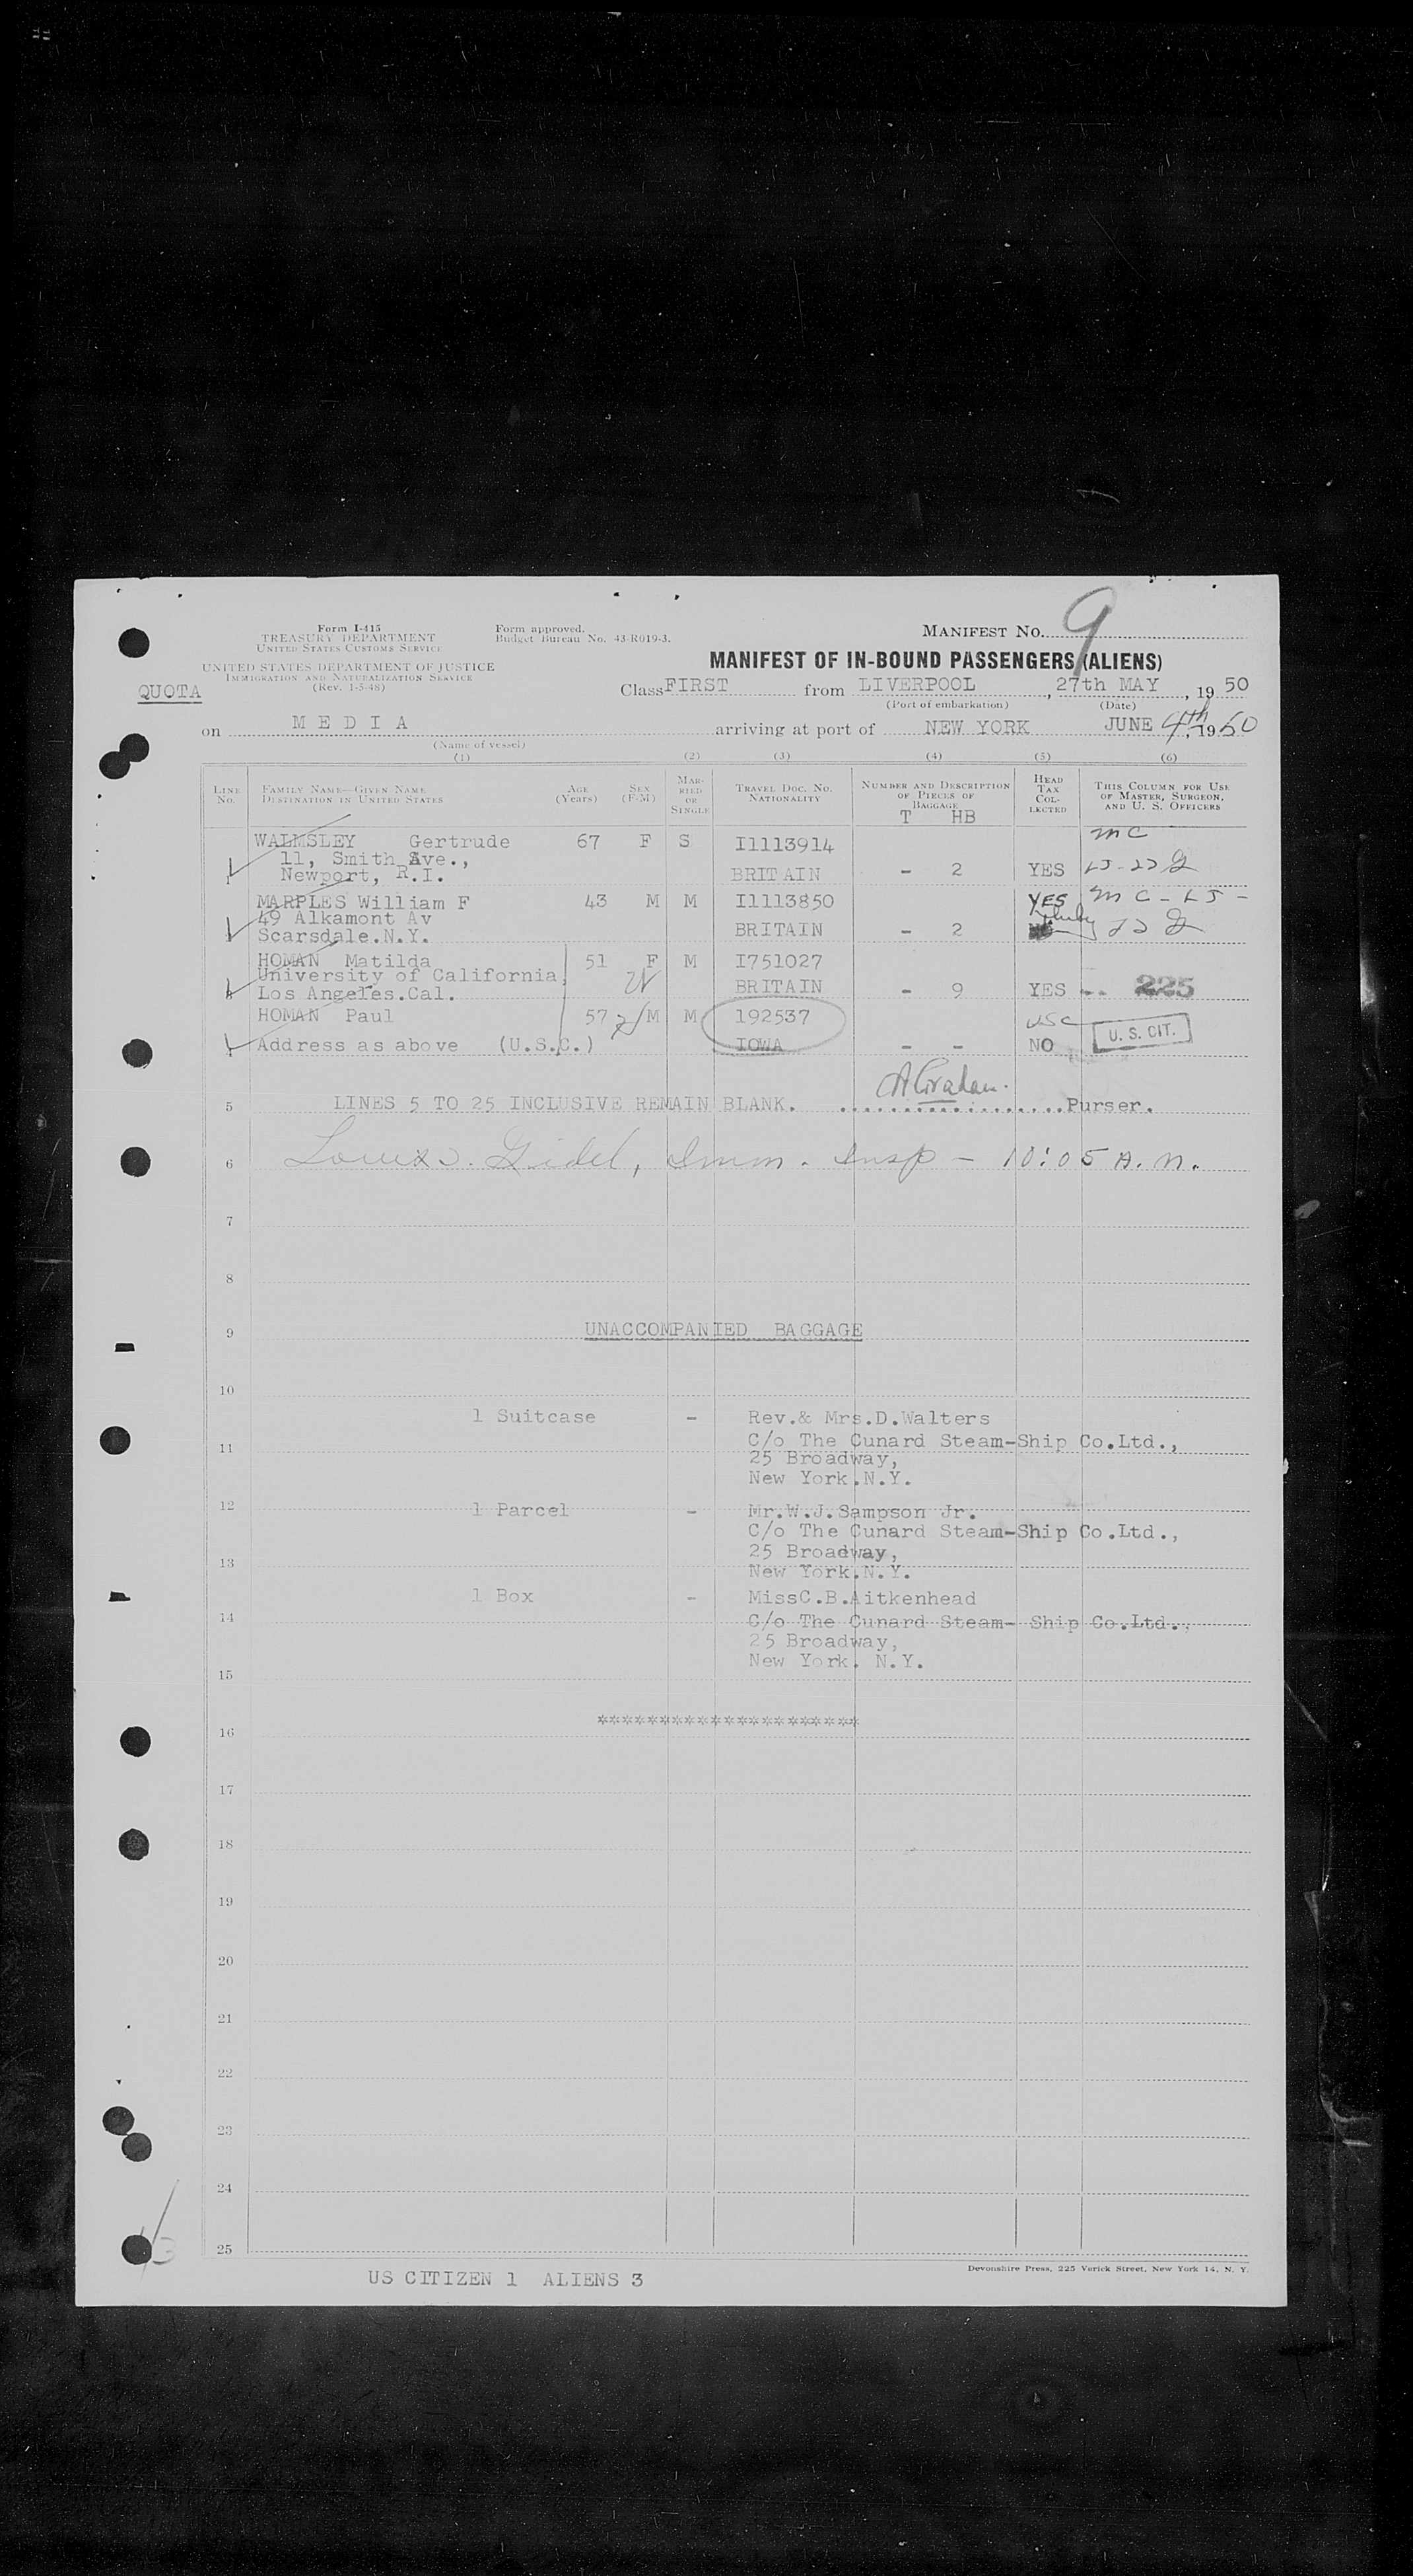 Form I-415
TREASURY DEPARTMENT
UNITED STATES CUSTOMS SERVICE
Form approved.
Budget Bureau No. 43-R019-3.
MANIFEST No. 9
UNITED STATES DEPARTMENT OF JUSTICE
IMMIGRATION AND NATURALIZATION SERVICE
(Rev. 1-5-48)
MANIFEST OF IN-BOUND PASSENGERS (ALIENS)
QUOTA
Class FIRST from LIVERPOOL, 27th MAY, 19 50
(Port of embarkation) (Date)
on MEDIA arriving at port of NEW YORK JUNE 4th, 1950
(Name of vessel)
(1) (2) (3) (4) (5) (6)
LINE No. FAMILY NAME—GIVEN NAME DESTINATION IN UNITED STATES AGE (Years) SEX (F-M) MARRIED OR SINGLE TRAVEL DOC. NO. NATIONALITY NUMBER AND DESCRIPTION OF PIECES OF BAGGAGE HEAD TAX COLLECTED THIS COLUMN FOR USE OF MASTER, SURGEON, AND U. S. OFFICERS
T HB
WALMSLEY Gertrude 67 F S I1113914 MC
11, Smith Ave.,
1 Newport, R.I. BRITAIN - 2 YES LJ-
MARPLES William F 43 M M I1113850 YES MC - LJ -
49 Alkamont Av
Scarsdale.N.Y. BRITAIN - 2
HOMAN Matilda 51 F M I751027
University of California,
Los Angeles.Cal. BRITAIN - 9 YES -- 225
HOMAN Paul 57 M M 192537 USC
Address as above (U.S.C.) IOWA - - NO U. S. CIT.
A Graham.
5 LINES 5 TO 25 INCLUSIVE REMAIN BLANK. ....................Purser.
6 Gidel, Imm. Insp - 10:05 A.M.
7
8
9 UNACCOMPANIED BAGGAGE
10
1 Suitcase - Rev.& Mrs.D.Walters
11 C/o The Cunard Steam-Ship Co.Ltd.,
25 Broadway,
New York.N.Y.
12 1 Parcel - Mr.W.J.Sampson Jr.
C/o The Cunard Steam-Ship Co.Ltd.,
25 Broadway,
13 New York.N.Y.
1 Box - MissC.B.Aitkenhead
14 C/o The Cunard Steam- Ship Co.Ltd.,
25 Broadway,
New York. N.Y.
15
16 *********************
17
18
19
20
21
22
23
24
25
US CITIZEN 1 ALIENS 3
Devonshire Press, 225 Varick Street, New York 14, N. Y.